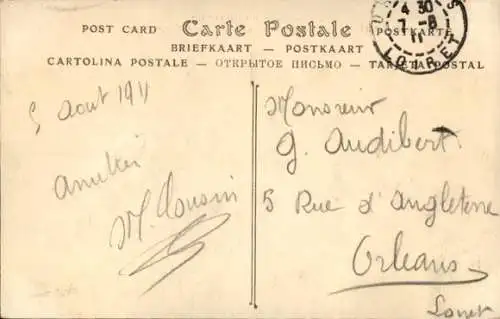 POST CARD Carte Postale POSTKARTE
BRIEFKAART - POSTKAART
CARTOLINA POSTALE - ОТКРЫТОЕ ПИСЬМО - TARJETA POSTAL
4 30
7 - 8
11
LOIRET
5 Aout 1911
M. Cousin
Monsieur
G. Audibert
5 Rue d'Angleterre
Orléans
Loiret